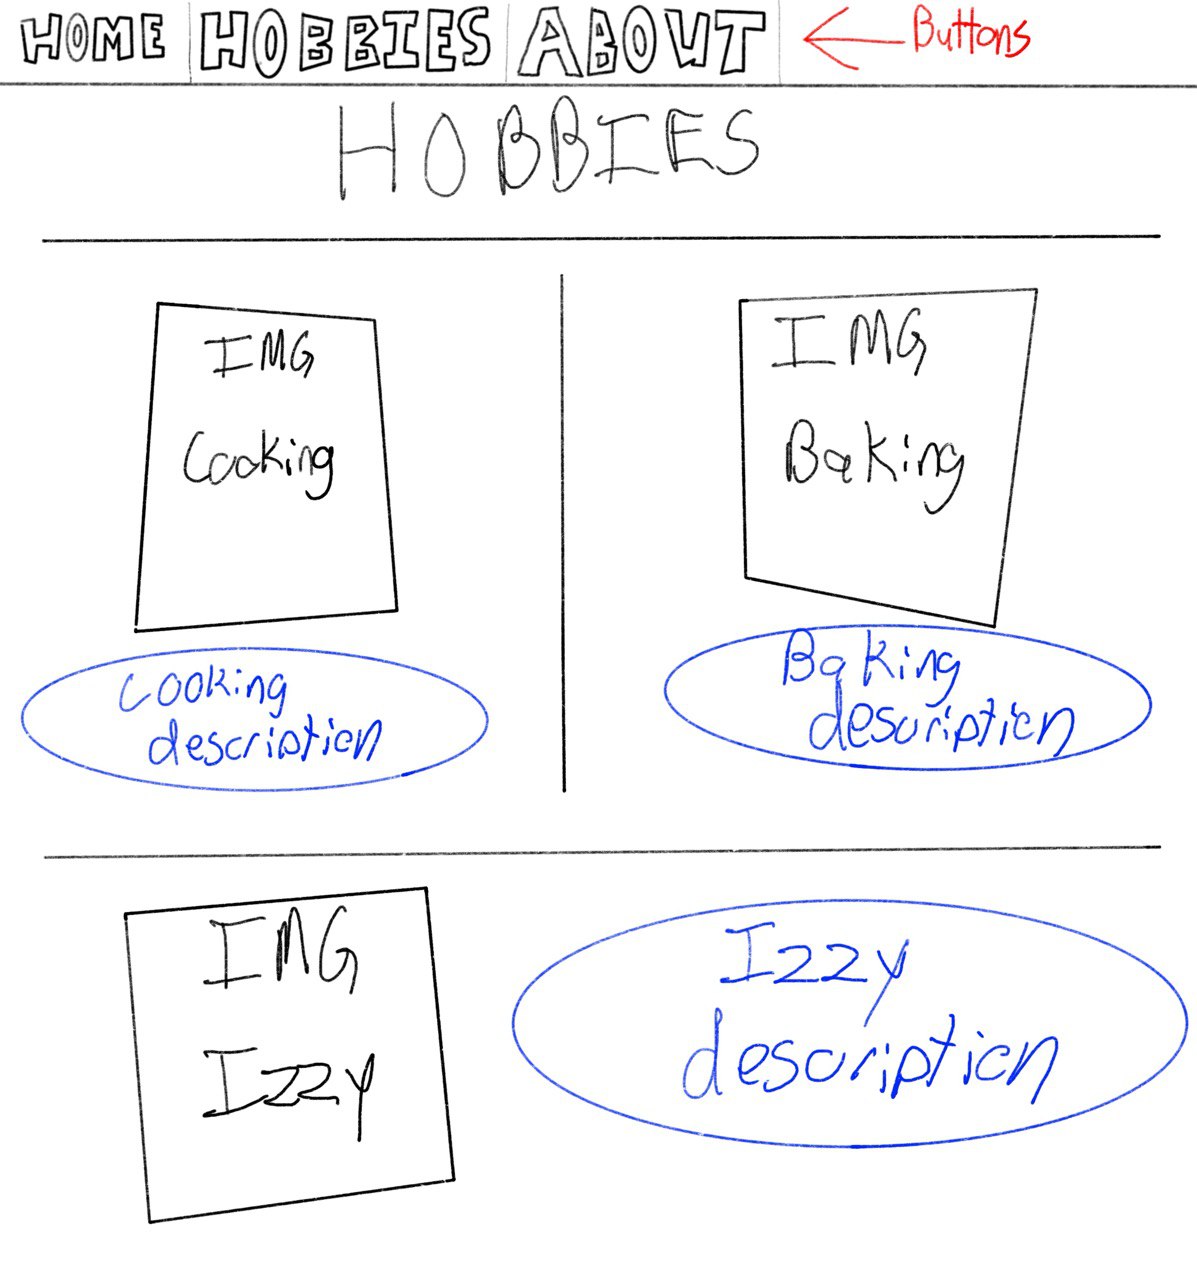 HOME HOBBIES ABOUT Buttons
HOBBIES
IMG
Cooking
IMG
Baking
Cooking
description
Baking
description
IMG
Izzy
Izzy
description